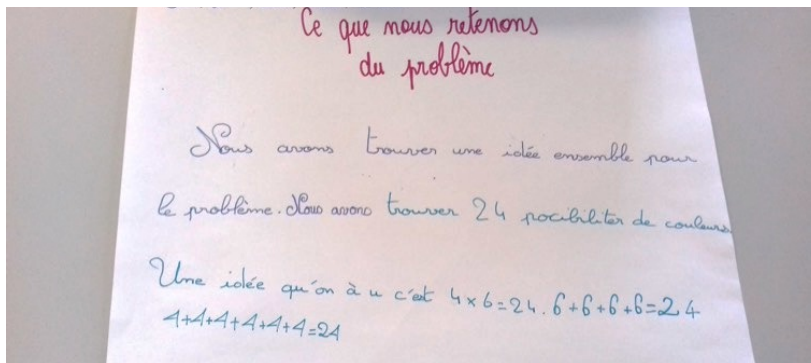 Ce que nous retenons
du problème
Nous avons trouver une idée ensemble pour
le problème. Nous avons trouver 24 pocibiliter de couleurs.
Une idée qu'on à u c'est 4x6=24. 6+6+6+6=24
4+4+4+4+4+4=24